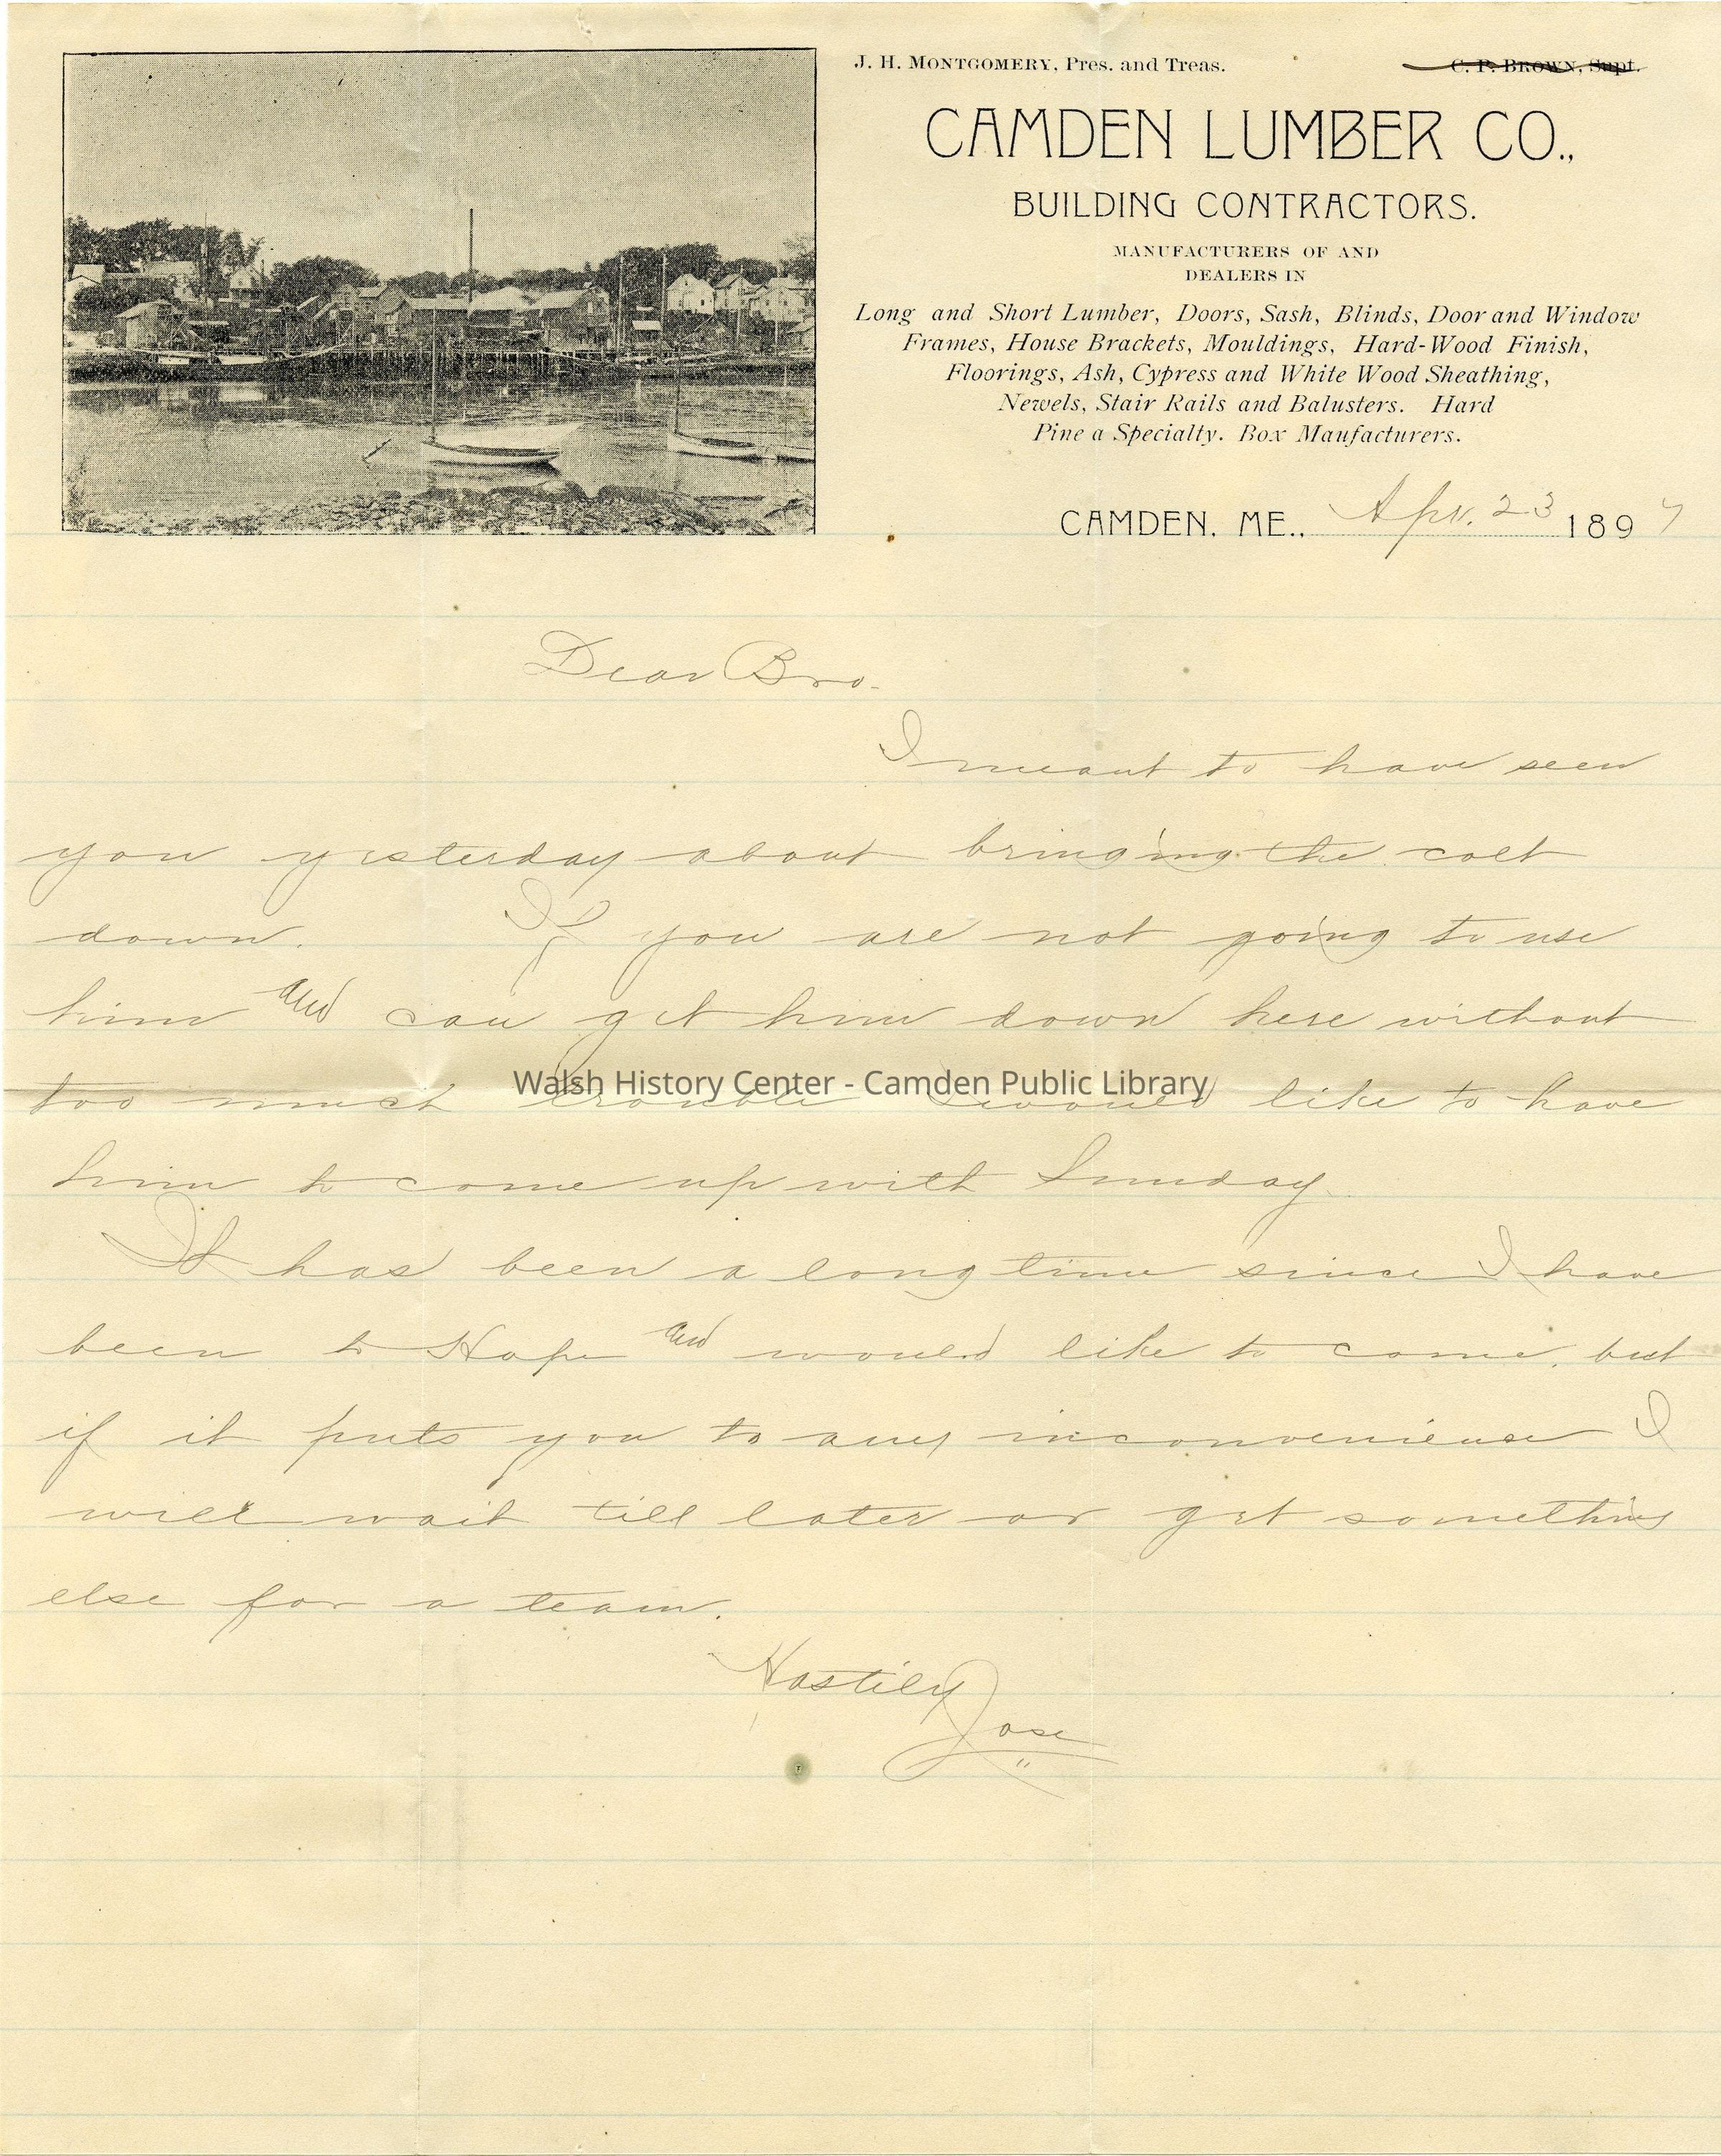 J. H. MONTGOMERY, Pres. and Treas.
C. P. BROWN, Supt.
CAMDEN LUMBER CO.,
BUILDING CONTRACTORS.
MANUFACTURERS OF AND
DEALERS IN
Long and Short Lumber, Doors, Sash, Blinds, Door and Window
Frames, House Brackets, Mouldings, Hard-Wood Finish,
Floorings, Ash, Cypress and White Wood Sheathing,
Newels, Stair Rails and Balusters. Hard
Pine a Specialty. Box Maufacturers.
CAMDEN, ME., Apr. 23 1897
Dear Bro.
I meant to have seen
you yesterday about bringing the colt
down. If you are not going to use
him and can get him down here without
too much trouble I would like to have
him to come up with Sunday
It has been a long time since I have
been to Hope and would like to come, but
if it puts you to any inconvenience I
will wait till later or get something
else for a team.
Hastily
Jose
Walsh History Center - Camden Public Library